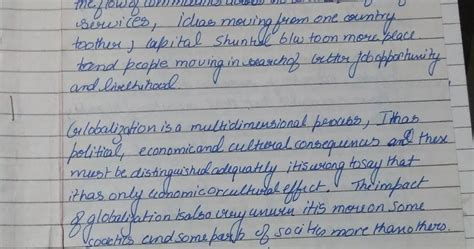 the flow of commodities across
services, ideas moving from one country
toother, capital Shunted blw toon more place.
tand people moving in search of better job opportunity
and livelihood.
Globalization is a multidimensional process, It has
political, economic and cultural consequences and these
must be distinguished adequately it is wrong to say that
it has only economic or cultural effect. The impact
of globalization is also very uneven it is more on some
societies and some parts of socities more than others.